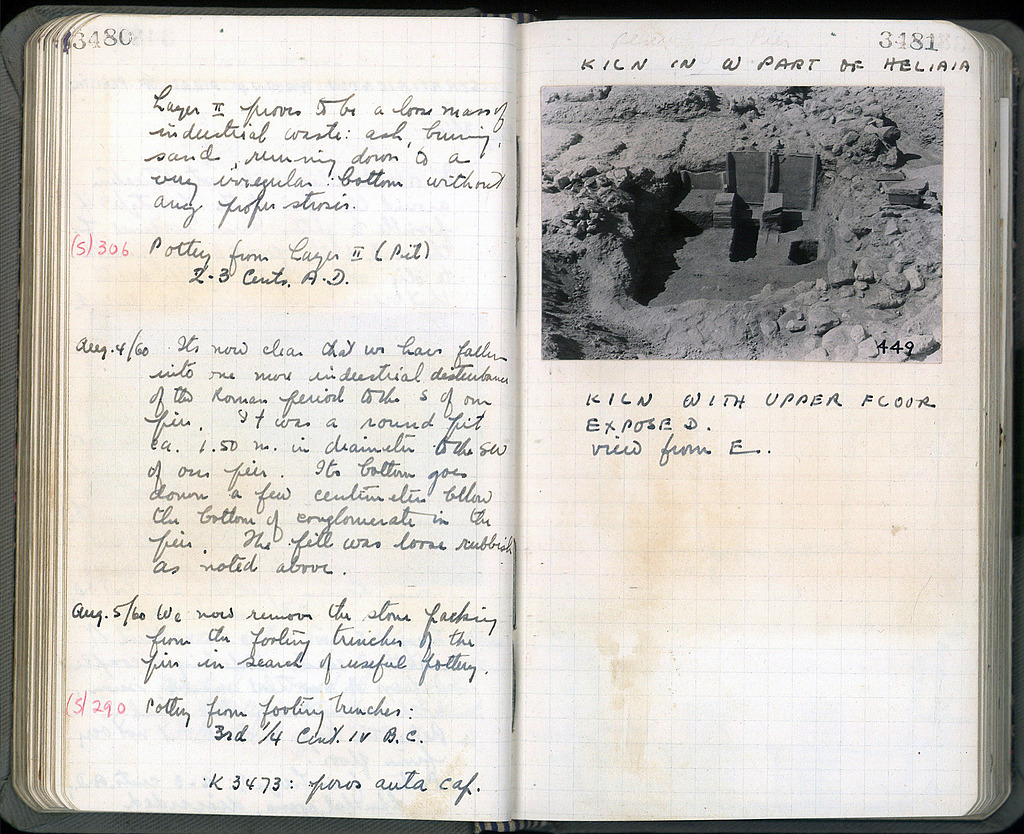 3480
Layer II proves to be a loose mass of
industrial waste: ash, burning,
sand, running down to a
very irregular bottom without
any proper stroses.
(S) 306 Pottery from Layer II (Pit)
2-3 Cents. A.D.
Aug. 4/60 It's now clear that we have fallen
into one more industrial disturbance
of the Roman period to the S of our
pier. It was a round pit
ca. 1.50 m. in diameter to the SW
of our pier. Its bottom goes
down a few centimeters below
the bottom of conglomerate in the
pier. The fill was loose rubbish
as noted above.
Aug. 5/60 We now remove the stone packing
from the footing trenches of the
pier in search of useful pottery.
(S) 290 Pottery from footing trenches:
3rd 1/4 Cent. IV B.C.
K 3473: poros anta cap.
3481
KILN IN W PART OF HELIAIA
449
KILN WITH UPPER FLOOR
EXPOSED.
view from E.